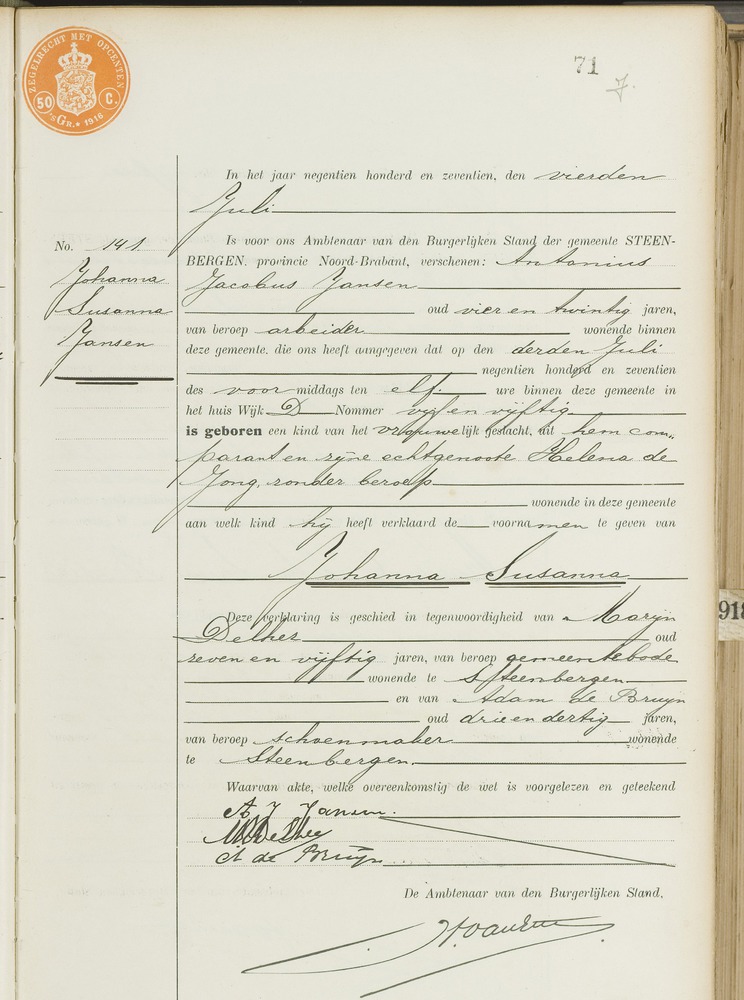 ZEGELRECHT MET OPCENTEN
50 C.
'S GR. 1916
71
7.
In het jaar negentien honderd en zeventien, den vierden
Juli
No. 141.
Johanna
Susanna
Jansen
Is voor ons Ambtenaar van den Burgerlijken Stand der gemeente STEEN-
BERGEN, provincie Noord-Brabant, verschenen: Antonius
Jacobus Jansen
oud vier en twintig jaren,
van beroep arbeider wonende binnen
deze gemeente, die ons heeft aangegeven dat op den derden Juli
negentien honderd en zeventien
des voormiddags ten elf ure binnen deze gemeente in
het huis Wijk D Nommer vijf en vijftig
is geboren een kind van het vrouwelijk geslacht, uit hem com„
parant en zijne echtgenoote Helena de
Jong, zonder beroep
wonende in deze gemeente
aan welk kind hij heeft verklaard de voornamen te geven van
Johanna Susanna
Deze verklaring is geschied in tegenwoordigheid van Marijn
oud
zeven en vijftig jaren, van beroep gemeentebode
wonende te Steenbergen
en van Adam de Bruyn
oud drie en dertig jaren,
van beroep schoenmaker wonende
te Steenbergen.
Waarvan akte, welke overeenkomstig de wet is voorgelezen en geteekend
A J Jansen.
A de Bruijn
De Ambtenaar van den Burgerlijken Stand,
918